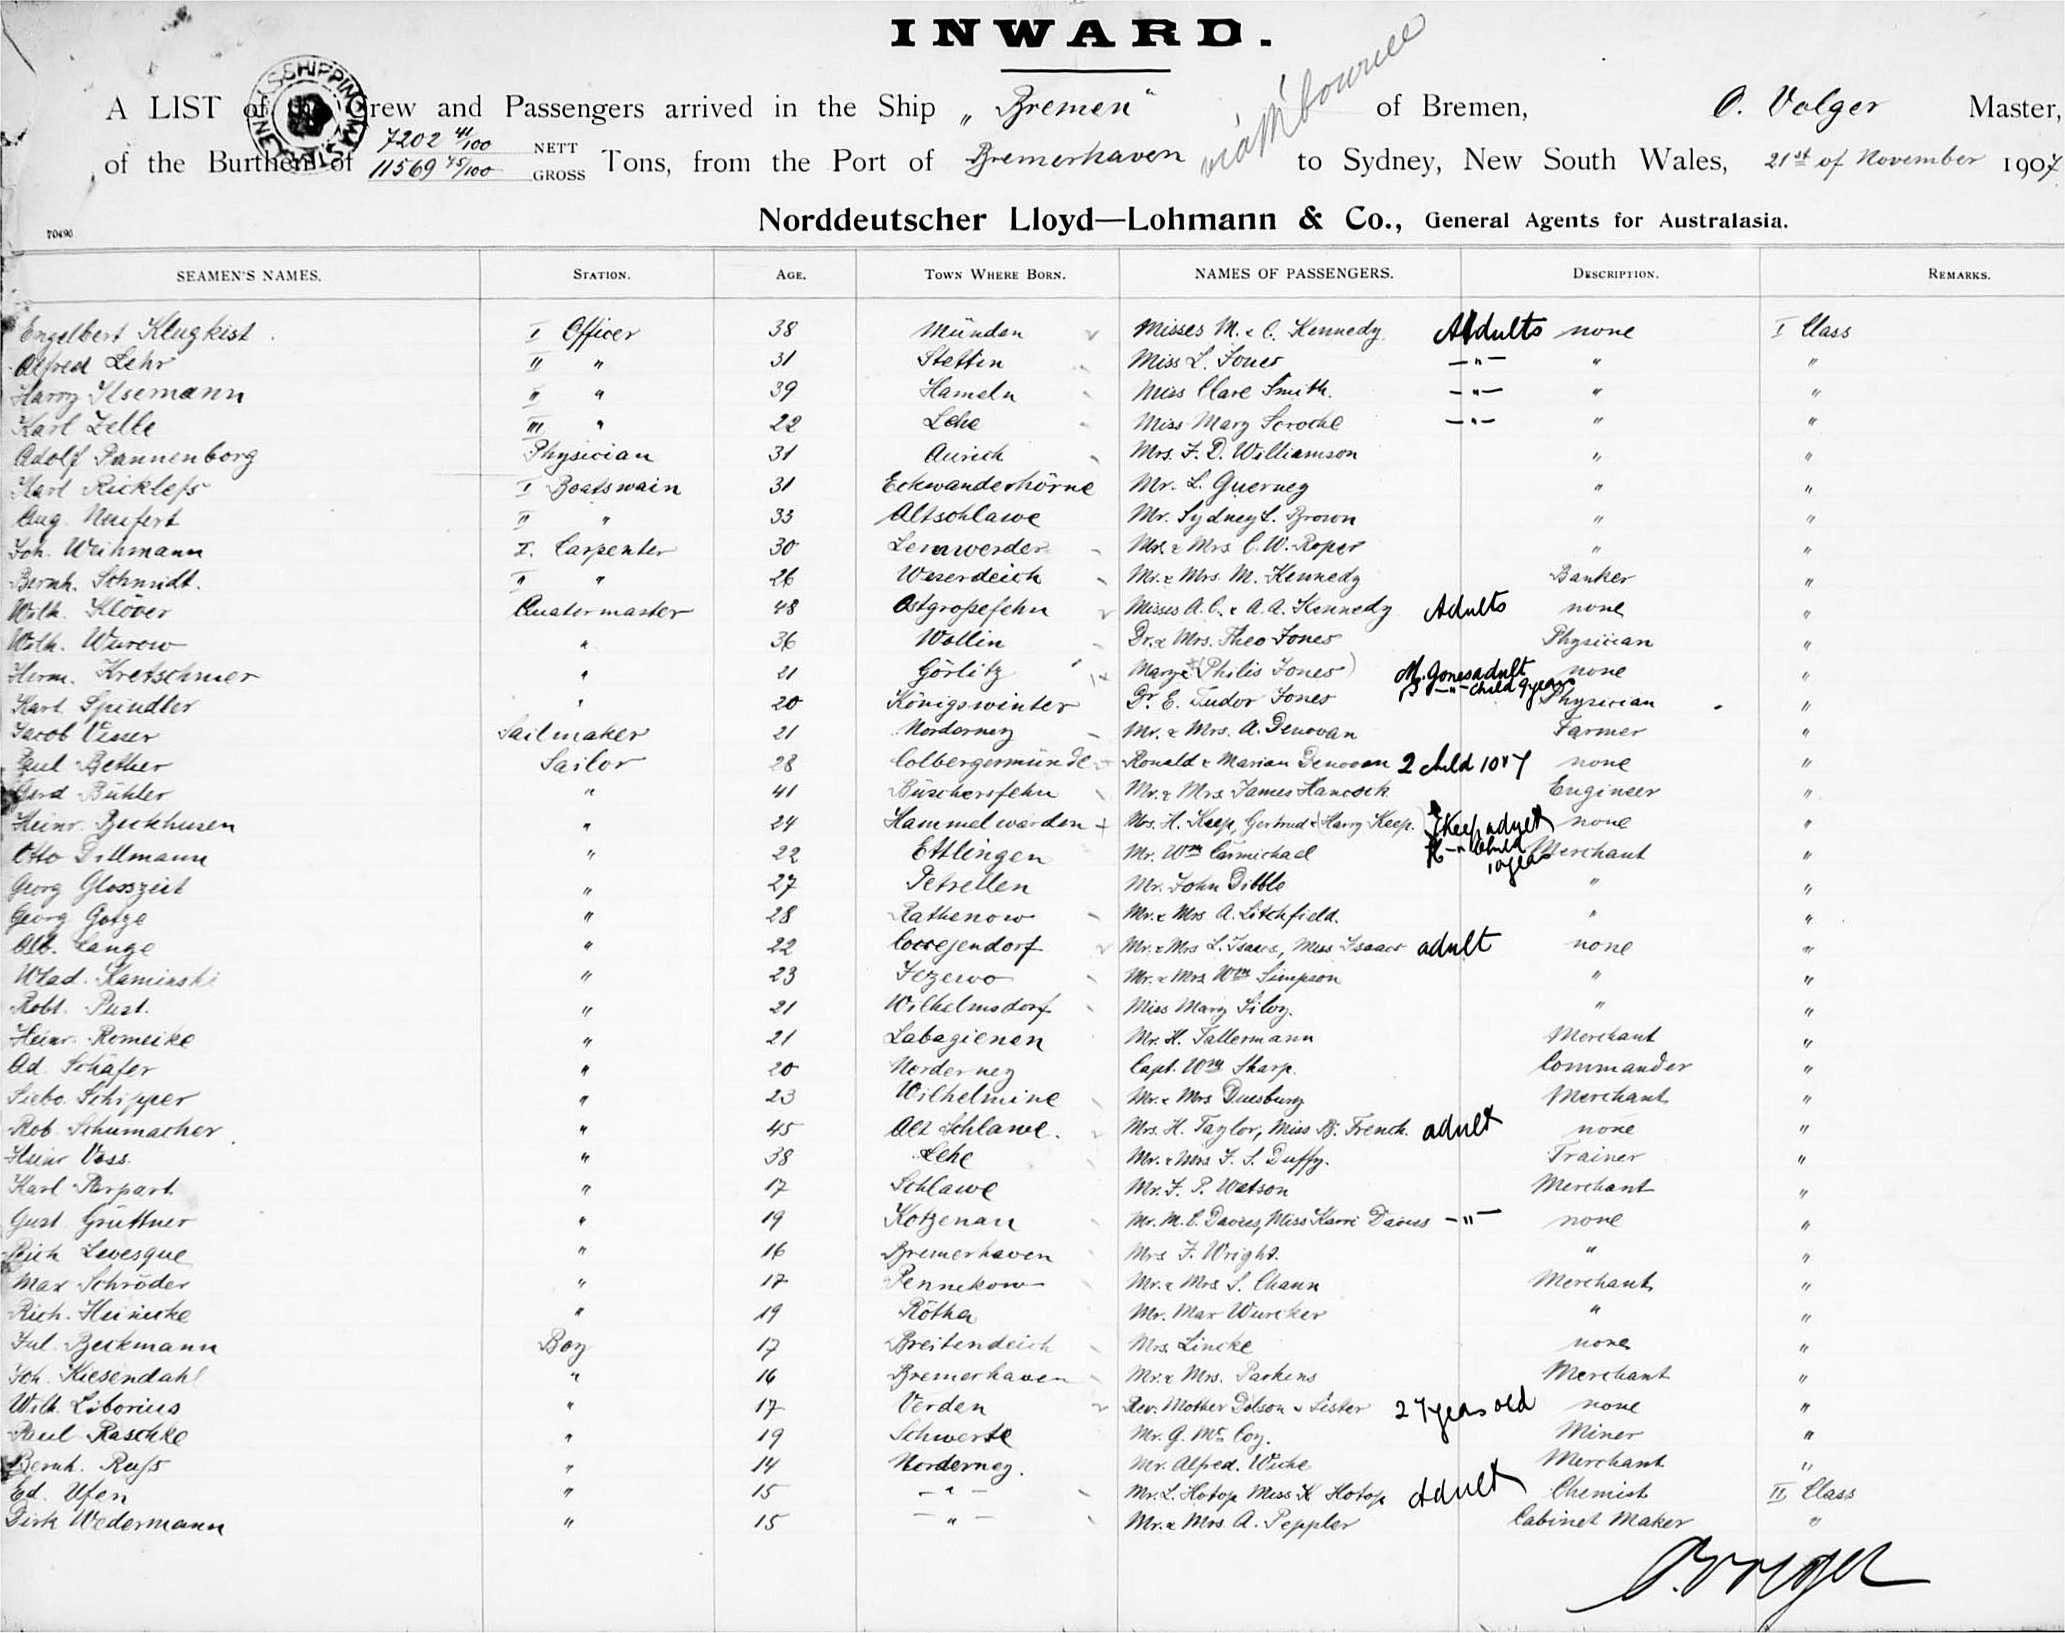 INWARD.
A LIST of the Crew and Passengers arrived in the Ship „Bremen“ of Bremen, O. Volger Master,
via Mbourne
of the Burthen of 7202 41/100 NETT 11569 45/100 GROSS Tons, from the Port of Bremerhaven to Sydney, New South Wales, 21st of November 1907
Norddeutscher Lloyd—Lohmann & Co., General Agents for Australasia.
70490
SEAMEN'S NAMES. STATION. AGE. TOWN WHERE BORN. NAMES OF PASSENGERS. DESCRIPTION. REMARKS.
Engelbert Klugkist I Officer 38 Münden Misses M. & C. Kennedy Adults none I Class
Alfred Lehr II " 31 Stettin Miss L. Jones —"— " "
Harry Ilsemann II " 39 Hameln Miss Clare Smith. —"— " "
Karl Zelle III " 22 Lehe Miss Mary —"— " "
Adolf Pannenborg Physician 31 Aurich Mrs. F. D. Williamson " "
Karl Ricklefs I Boatswain 31 Eckwarderhörne Mr. L. Guerney " "
Aug. Neufert II " 33 Altschlawe Mr. Sydney L. Brown " "
Joh. Weihmann I. Carpenter 30 Lemwerder Mr. & Mrs. C. W. Roper " "
Bernh. Schmidt. II " 26 Weserdeich Mr. & Mrs. M. Kennedy Banker "
Wilh. Klöver Quatermaster 48 Ostgroßefehn Misses A. C. & A. A. Kennedy Adults none "
Wilh. Wurow " 36 Wollin Dr. & Mrs. Theo Jones Physician "
Herm. Kretschmer " 21 Görlitz Mary & (Philis Jones) M. Jones adult none "
P —"— child 9 years
Karl Spindler " 20 Königswinter Dr. E. Tudor Jones Physician "
Jacob Visser Sailmaker 21 Norderney Mr. & Mrs. A. Denovan Farmer "
Paul Bether Sailor 28 Colbergermünde Ronald & Marian Denovan 2 child 10 & 7 none "
Gerd Bühler " 41 Büschersfehn Mr. & Mrs. James Hancock Engineer "
Heinr. Beckhusen " 24 Hammelwarden Mrs. H. Keep, Gertrud & (Harry Keep.) G Keep adult none "
H —"— child 10 years
Otto Dillmann " 22 Ettlingen Mr. Wm Carmichael Merchant "
Georg " 27 Petrellen Mr. John Dibble " "
Georg Gotze " 28 Rathenow Mr. & Mrs A. Litchfield. " "
Alb. Lange " 22 Mr. & Mrs L. Isaacs, Miss Isaacs adult none "
Wlad. Kaminski " 23 Jezewo Mr. & Mrs Wm Simpson " "
Robt. Pust. " 21 Wilhelmsdorf Miss Mary Siloy. " "
Heinr. Romeike " 21 Labagienen Mr. H. Tallermann Merchant "
Ad. Schäfer " 20 Norderney Capt. Wm Sharp. Commander "
Siebo Schipper " 23 Wilhelmine Mr. & Mrs Duesbury Merchant "
Rob. Schumacher " 45 Alt Schlawe. Mrs. H. Taylor, Miss B. French. adult none "
Heinr Voss. " 38 Lehe Mr. & Mrs F. S. Duffy. Trainer "
Karl Parpart. " 17 Schlawe Mr. F. P. Watson Merchant "
Gust. Grüttner " 19 Kotzenau Mr. M. C. Davies, Miss Karri Davies —"— none "
Rich Levesque " 16 Bremerhaven Mrs F. Wright. " "
Max Schröder " 17 Pennekow Mr. & Mrs S. Chann Merchant "
Rich. Heinicke " 19 Rötha Mr. Max Wurcker " "
Jul. Beckmann Boy 17 Breitendeich Mrs. Lincke none "
Joh. Kiesendahl " 16 Bremerhaven Mr. & Mrs. Parkins Merchant "
Wilh. Liborius " 17 Verden Rev. Mother Dolson & Sister 27 years old none "
Paul Raschke " 19 Schwerte Mr. G. Mc Coy. Miner "
Bernh. Raß " 14 Norderney. Mr. Alfred. Wiche Merchant "
Ed. Ufen " 15 —"— Mr. L. Hotop Miss K Hotop Adult Chemist II Class
Dirk Wedermann " 15 —"— Mr. & Mrs A. Peppler Cabinet Maker "
O. Volger